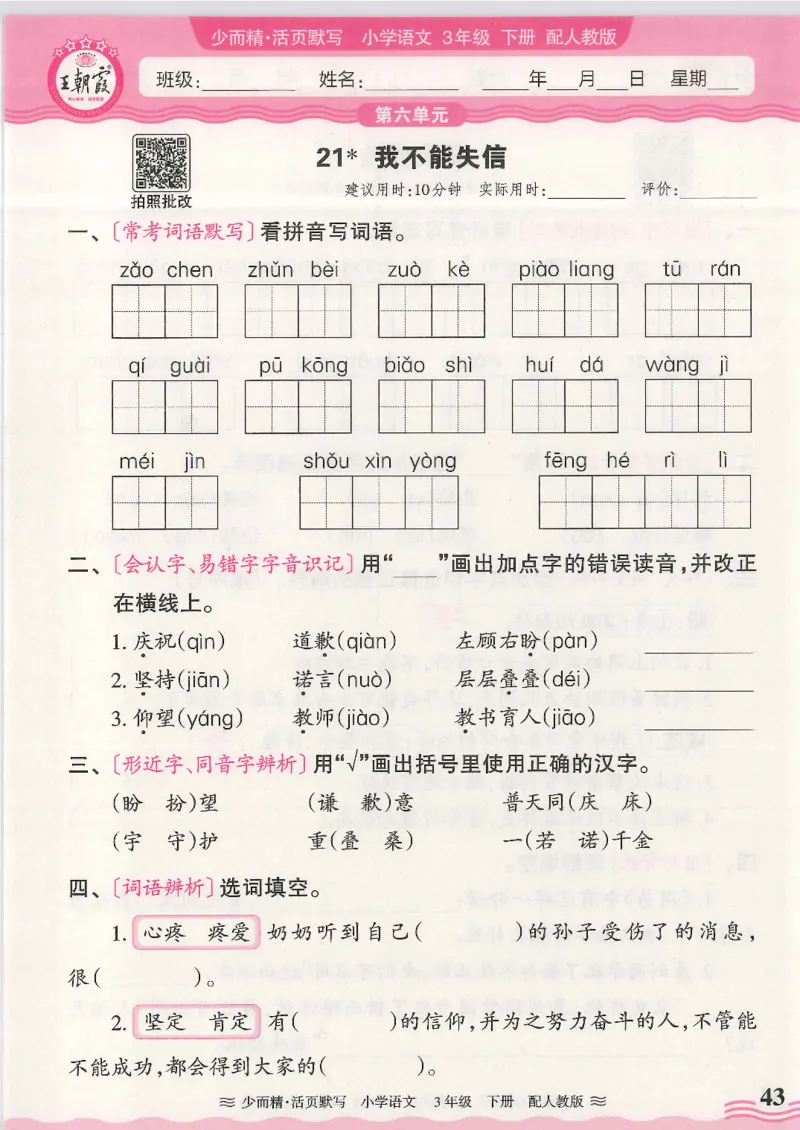 少而精·活页默写 小学语文 3年级 下册 配人教版
王朝霞
班级:________ 姓名:________ ____年___月___日 星期___
第六单元
21* 我不能失信
拍照批改
建议用时:10分钟 实际用时:________ 评价:________
一、〔常考词语默写〕看拼音写词语。
zǎo chen zhǔn bèi zuò kè piào liang tū rán
qí guài pū kōng biǎo shì huí dá wàng jì
méi jìn shǒu xìn yòng fēng hé rì lì
二、〔会认字、易错字字音识记〕用“____”画出加点字的错误读音,并改正
在横线上。
1. 庆祝(qìn) 道歉(qiàn) 左顾右盼(pàn) ________
2. 坚持(jiān) 诺言(nuò) 层层叠叠(déi) ________
3. 仰望(yáng) 教师(jiào) 教书育人(jiāo) ________
三、〔形近字、同音字辨析〕用“√”画出括号里使用正确的汉字。
(盼 扮)望 (谦 歉)意 普天同(庆 床)
(宇 守)护 重(叠 桑) 一(若 诺)千金
四、〔词语辨析〕选词填空。
1. 心疼 疼爱 奶奶听到自己( )的孙子受伤了的消息,
很( )。
2. 坚定 肯定 有( )的信仰,并为之努力奋斗的人,不管能
不能成功,都会得到大家的( )。
少而精·活页默写 小学语文 3年级 下册 配人教版
43